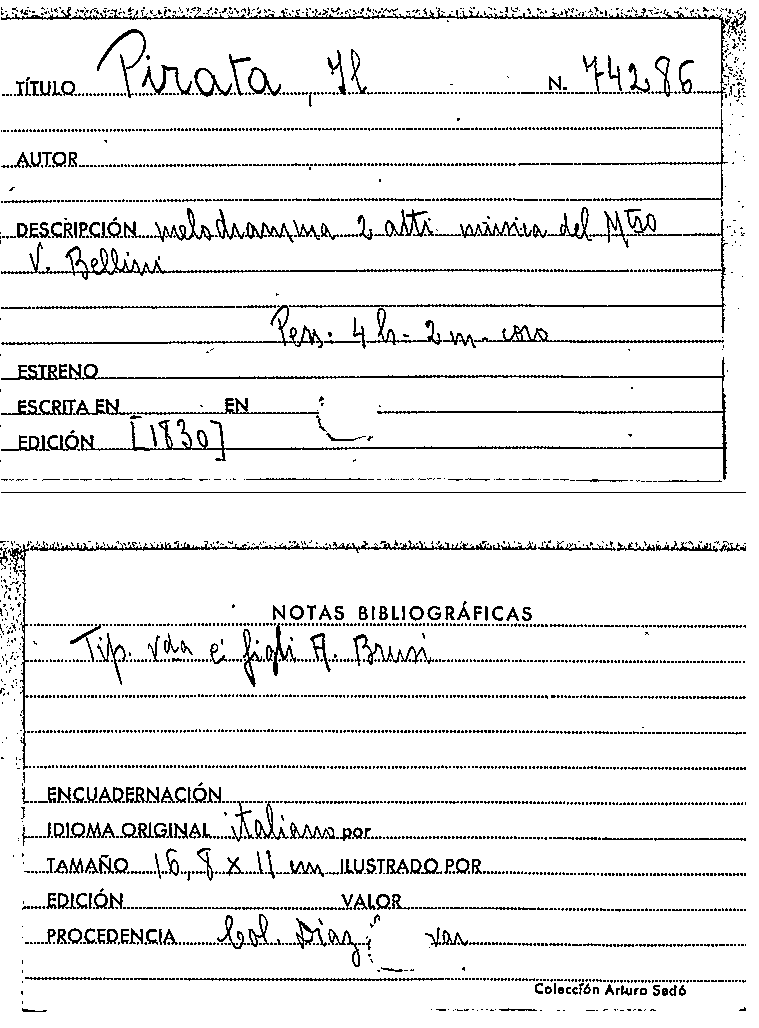 TÍTULO Pirata, Il N. 74286
AUTOR
DESCRIPCIÓN melodramma 2 atti música del Mtro
V. Bellini
Pers: 4 h - 2 m - coro
ESTRENO
ESCRITA EN EN
EDICIÓN [1830]
NOTAS BIBLIOGRÁFICAS
Tip. vda e figli A. Brusi
ENCUADERNACIÓN
IDIOMA ORIGINAL italiano por
TAMAÑO 16,8 x 11 cm ILUSTRADO POR
EDICIÓN VALOR
PROCEDENCIA Col. Díaz
Colección Arturo Sedó